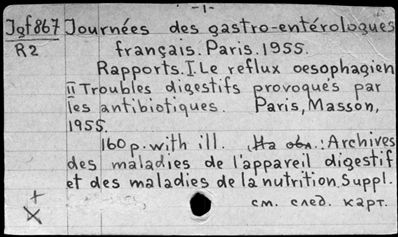 -1-
Jgf867 Journées des gastro-entérologues
R2 français. Paris. 1955.
Rapports. I. Le reflux oesophagien
II Troubles digestifs provoqués par
les antibiotiques. Paris, Masson,
1955.
160 p. with ill. На обл.: Archives
des maladies de l'appareil digestif
et des maladies de la nutrition. Suppl.
см. след. карт.